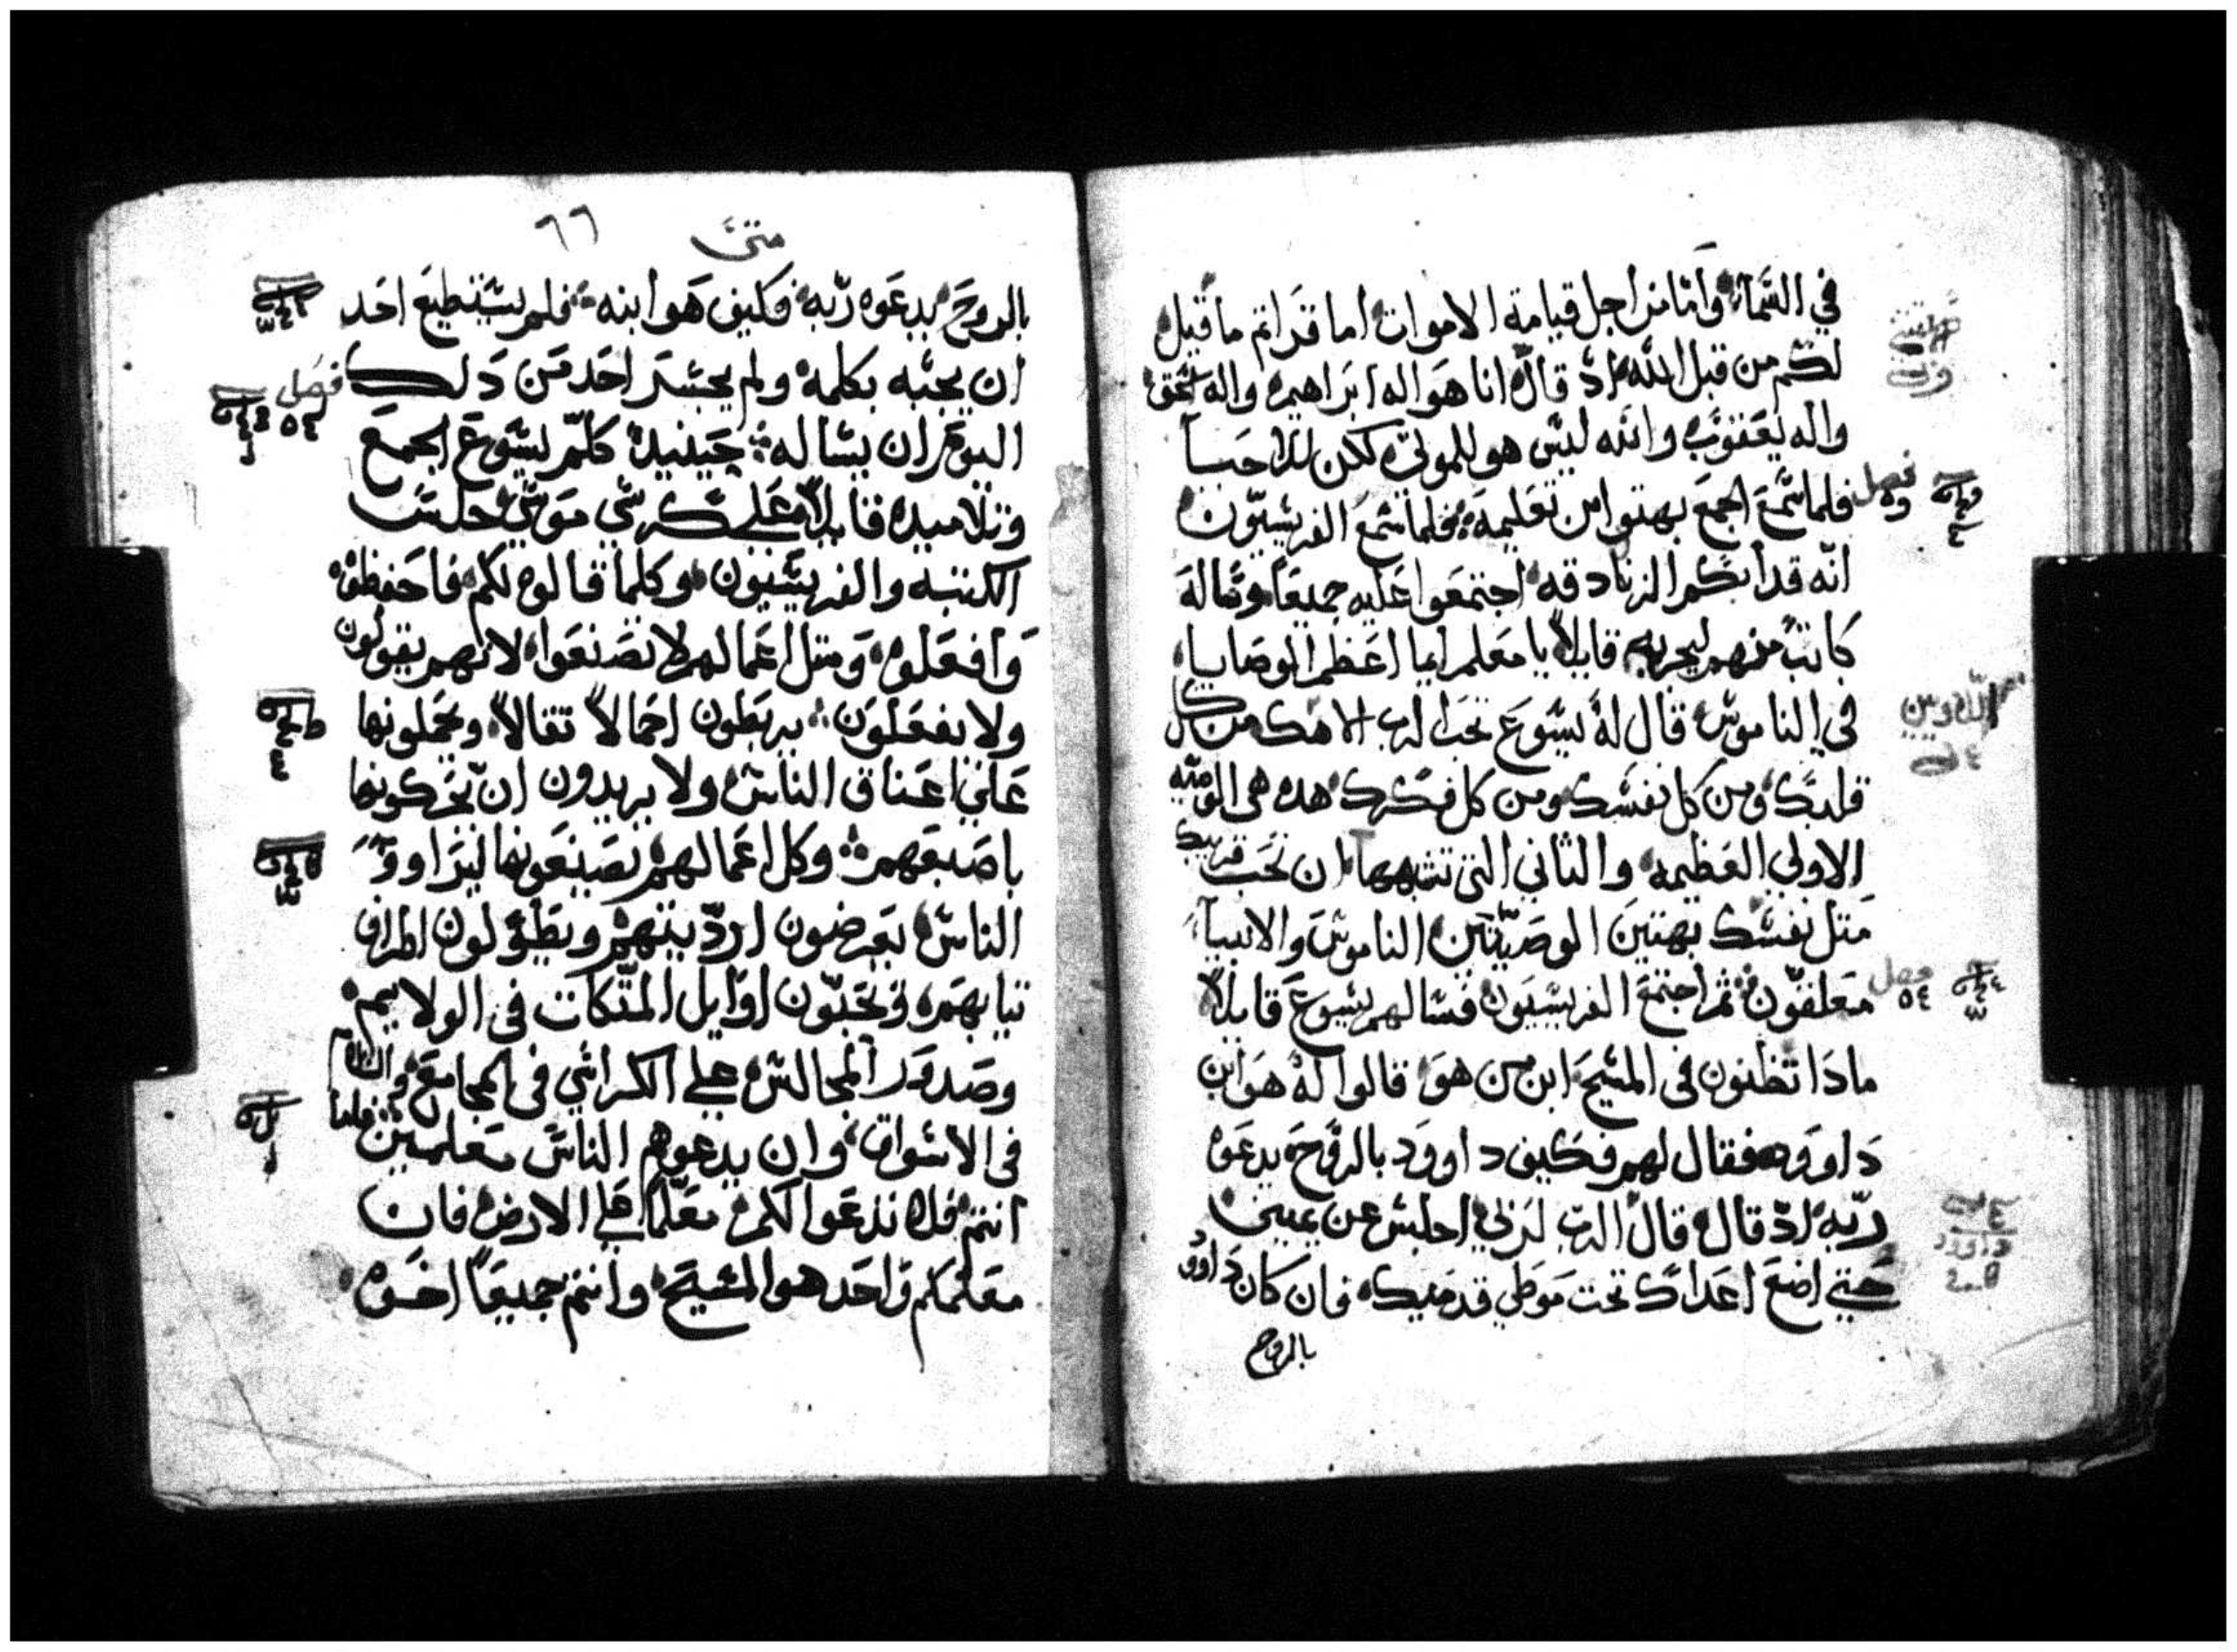 في السماء وامّا من اجل قيامة الاموات اما قراتم ما قيل
لكم من قبل الله اد قال انا هو اله ابراهيم واله اسحق
واله يعقوب والله ليس هو للموتى لكن للاحيا
فصل ٥٣ فلما سمع الجمع بهتوا من تعليمه فلما سمع الفريسيّون
انّه قد ابكم الزنادقه اجتمعوا عليه جميعًا وساله
كاتب منهم ليجربه قايلاً يا معلم ايما اعظم الوصايا
في الناموس قال له يسوع تحب الرب الاهك من كل
قلبك ومن كل نفسك ومن كل فكرك هده هى الوصيه
الاولي العظيمه والثاني التى تشبهها ان تحب قريبك
متل نفسك بهتين الوصيّتين الناموس والانبيا
فصل ٥٤ متعلقّون ثم اجتمع الفريسيون فسالهم يسوع قايلاً
مادا تظنون فى المسيح ابن من هو قالوا له هو ابن
داوود فقال لهم فكيف داوود بالروح يدعوه
ربّه ادّ قال قال الرب لربي اجلس عن يميني
حتي اضع اعداك تحت موطي قدميك فان كان داوود
بالروح
متى ٦٦
بالروح يدعوه ربّه فكيف هو ابنه فلم يستطيع احد
ان يجبه بكلمه ولم يجسر احد من دلك فصل ٥٤
اليوم ان يساله حينيد كلّم يسوع الجمع
وتلاميده قايلاً على كرسي موسي جلس
الكتبه والفريسيون وكلما قالوه لكم فاحفظوه
وافعلوه ومتل اعمالهم لا تصنعوا لانهم يقولون
ولا يفعلون يربطون احمالاً تقالاً ويحملونها
على اعناق الناس ولا يريدون ان يحركونها
باصبعهم وكل اعمالهم يصنعونها ليراوو
الناس يعرضون ارديتهم ويطولون اطراف
تيابهم ويحبّون اوايل المتّكات في الولايم
وصدور المجالس على الكراسي فى المجامع والسلام
فى الاسواق وان يدعوهم الناس معلمين فاما
انتم فلا تدعوا لكم معلّمًا على الارض فان
معلمكم واحد هو المسيح وانتم جميعًا اخوه